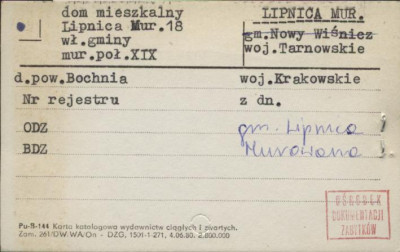 dom mieszkalny
Lipnica Mur.18
wł.gminy
mur.poł.XIX
LIPNICA MUR.
gm.Nowy Wiśnicz
woj.Tarnowskie
d.pow.Bochnia woj.Krakowskie
Nr rejestru z dn.
ODZ gm. Lipnica
BDZ Murowana
Pu-B-144 Karta katalogowa wydawnictw ciągłych i zwartych.
Zam. 261/DW.WA/On - DZG, 1501-1-271, 4.06.80. 2.800.000
OŚRODEK
DOKUMENTACJI
ZABYTKÓW